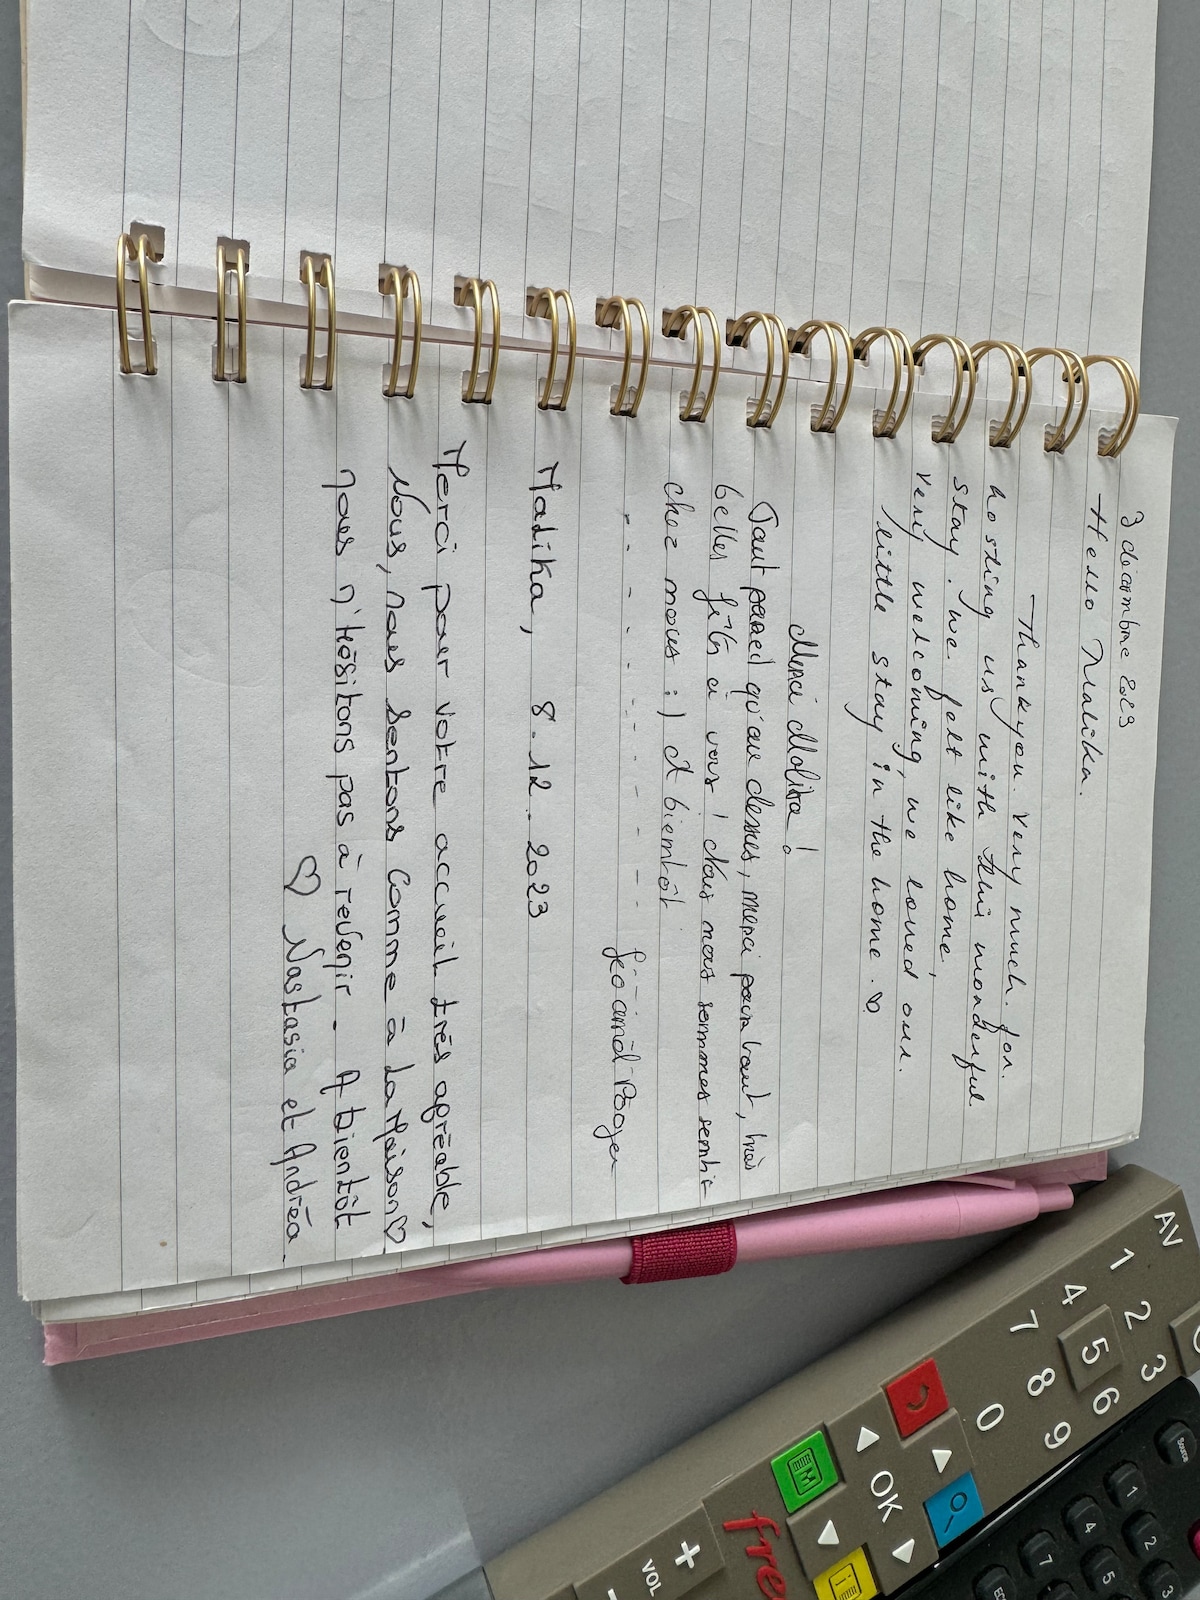 3 décembre 2023
Hello Malika.
Thank you. Very much. for.
hosting us with this wonderful.
stay. we. felt like home,
very welcoming, we loved our.
little stay in the home. ♡
Merci Malika !
Tout pareil qu'au dessus, merci pour tout, très
belles fêtes à vous ! Nous nous sommes sentis
chez nous :) à bientôt.
and Roger
Malika, 8.12.2023
Merci pour votre accueil très agréable,
Nous, nous sentons comme à la Maison ♡
nous n'hésitons pas à revenir. A bientôt
♡ Nastasia et Andréa.
AV
1 2 3
4 5 6
7 8 9
0
OK
M
i
free
+
VOL
Source
1 2 3
4 5
7